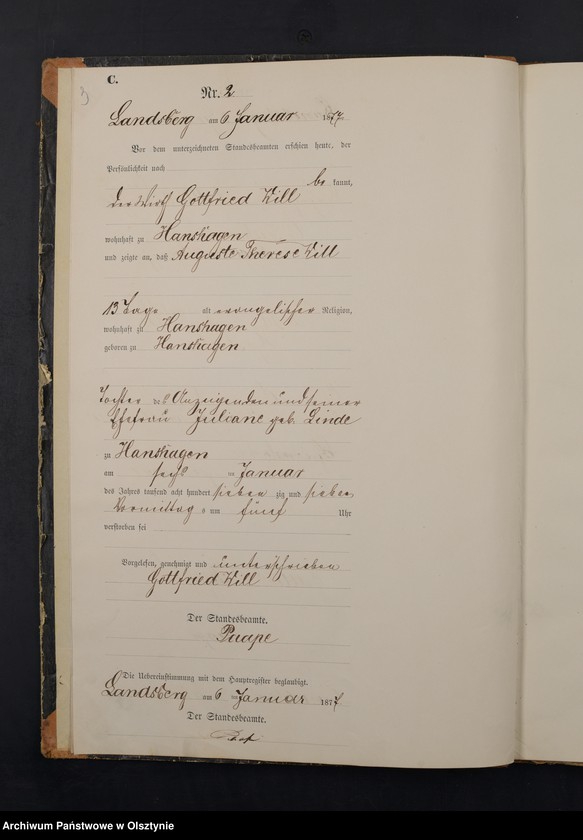 C.
3
Nr. 2
Landsberg am 6 Januar 1877
Vor dem unterzeichneten Standesbeamten erschien heute, der
Persönlichkeit nach
be kannt,
der Wirth Gottfried Will
wohnhaft zu Hanshagen
und zeigte an, daß Auguste Therese Will
13 Tage alt evangelischer Religion,
wohnhaft zu Hanshagen
geboren zu Hanshagen
Tochter des Anzeigenden und seiner
Ehefrau Juliane geb. Linde
zu Hanshagen
am sechs ten Januar
des Jahres tausend acht hundert sieben zig und sieben
Vormittag s um fünf Uhr
verstorben sei
Vorgelesen, genehmigt und unterschrieben
Gottfried Will
Der Standesbeamte.
Paape
Die Uebereinstimmung mit dem Hauptregister beglaubigt.
Landsberg am 6 ten Januar 1877
Der Standesbeamte.
Archiwum Państwowe w Olsztynie